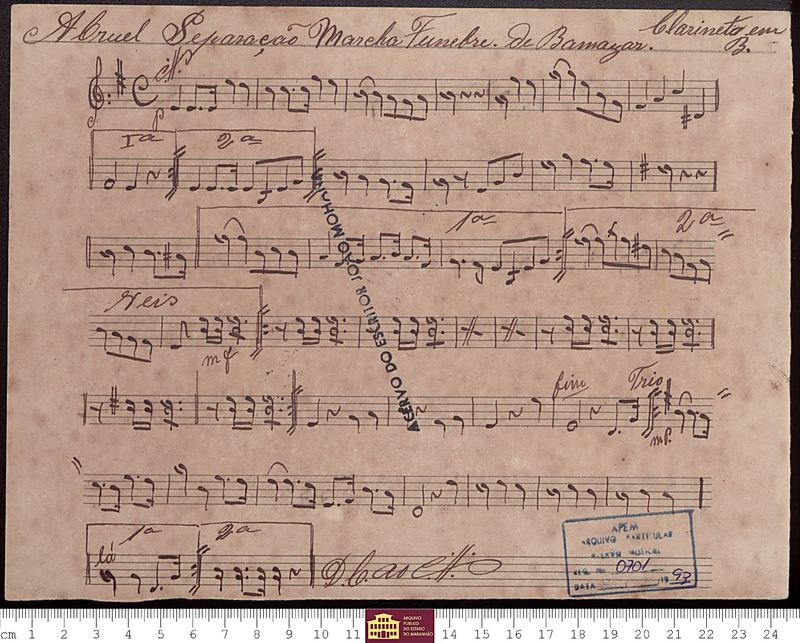 A Cruel Separação Marcha Funebre. de Bamazar. Clarineto em B.
p
1a 2a
1a 2a
Neis
mf
fim Trio
mp.
1a 2a
D.C. ao
ACERVO DO ESCRITOR JOÃO MOHANA
APEM
ARQUIVO PARTICULAR
ACERVO MUSICAL
REG. No 0701
DATA 19 93
cm 1 2 3 4 5 6 7 8 9 10 11 14 15 16 17 18 19 20 21 22 23 24
ARQUIVO
PÚBLICO
DO ESTADO
DO MARANHÃO